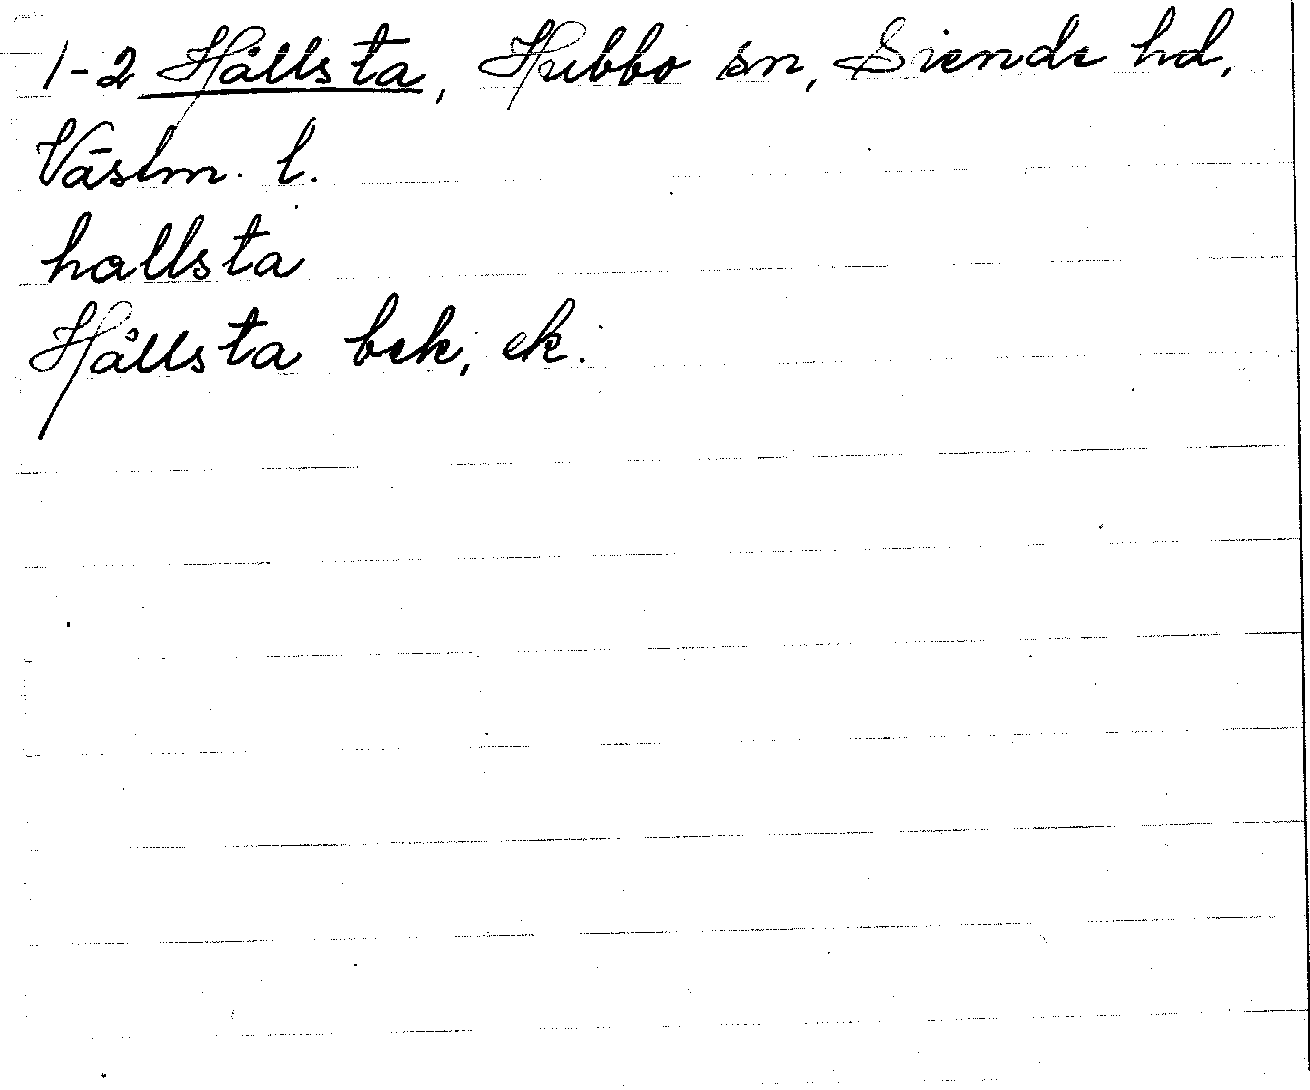 1-2 Hållsta, Hubbo sn, Siende hd,
Västm. l.
hallsta
Hållsta bek, ek.